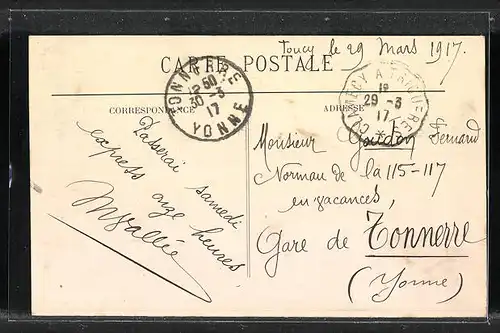 Toucy le 29 Mars 1917.
CARTE POSTALE
TONNERRE
12 50
30 - 3
17
YONNE
CLAMECY A TRIGUERES
1°
29 - 3
17
CORRESPONDANCE
ADRESSE
Passerai samedi
express onze heures,
Mvallée
Monsieur Fernand
Norman de la 115-117
en vacances,
Gare de Tonnerre
(Yonne)